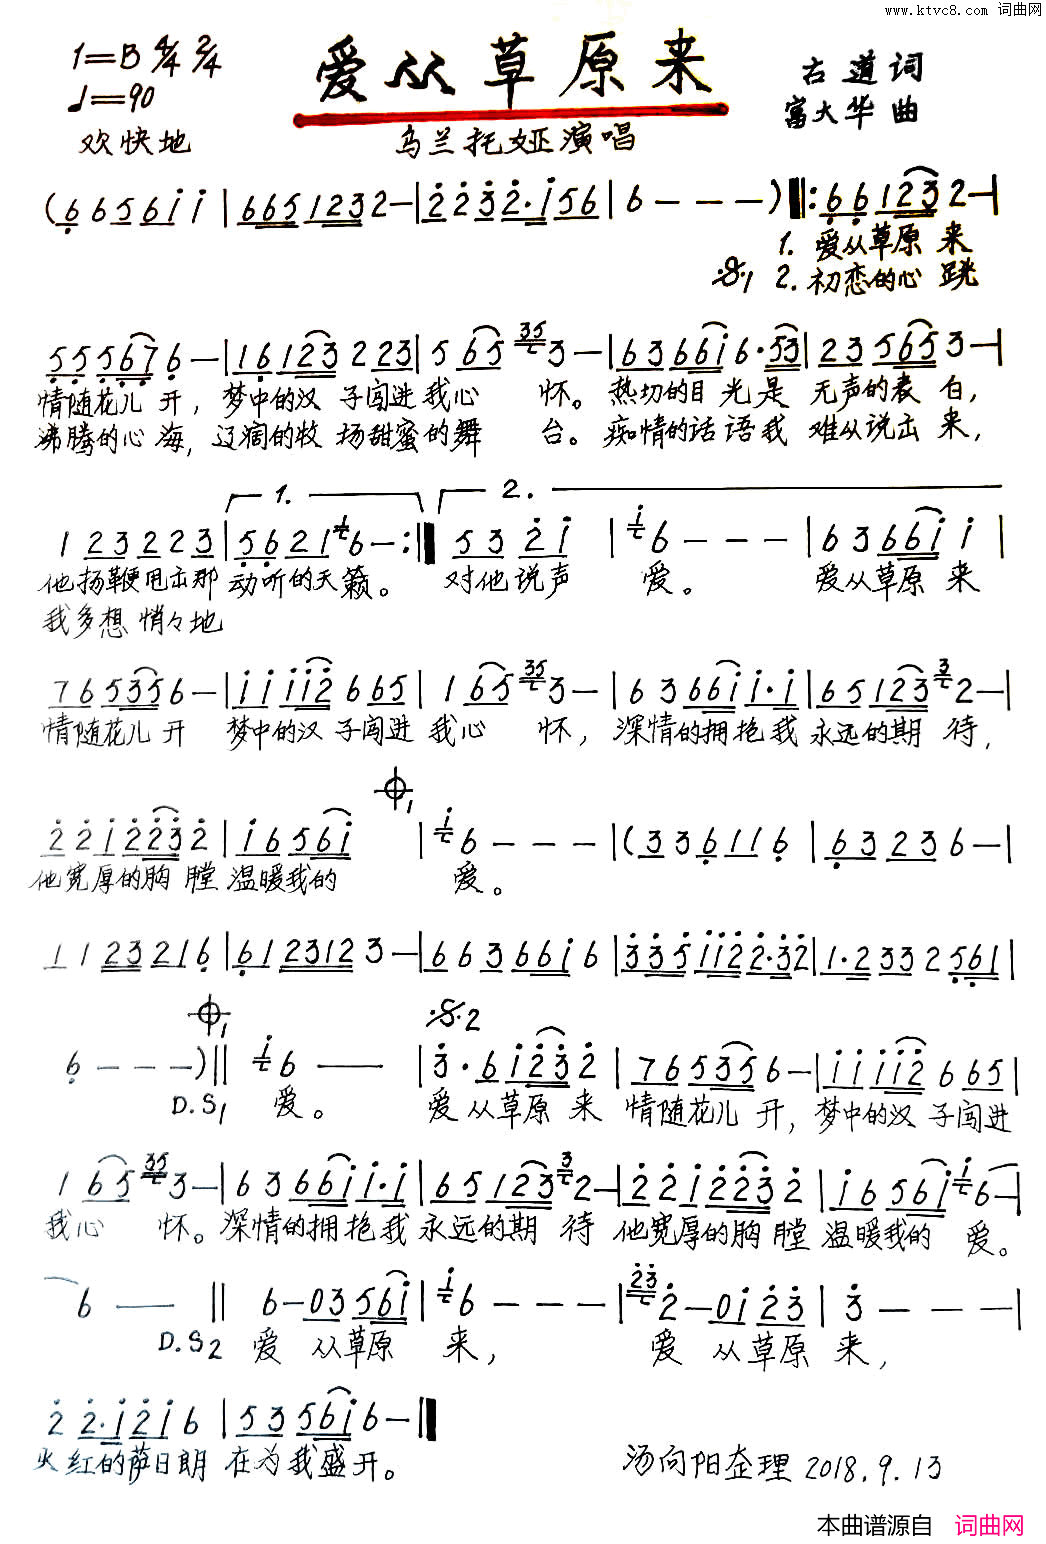 www.ktvc8.com 词曲网
1=B 4/4 2/4
爱从草原来
古道词
♩=90
富大华 曲
欢快地
乌兰托娅演唱
(6 6 5 6 i i | 6 6 5 1 2 3 2 - | 2 2 3 2·i 5 6 | 6 - - - ) ‖: 6 6 1 2 3 2 - |
1. 爱从草原 来
𝄋1 2. 初恋的心 跳
5 5 5 6 7 6 - | 6 6 1 2 3 2 2 3 | 5 6 5 35 3 - | 6 3 6 6 i 6·5 3 | 2 3 5 6 5 3 - |
情随花儿 开, 梦中的汉 子闯进 我心 怀。 热切的目 光是 无声的表 白,
沸腾的心 海, 辽阔的牧 场甜蜜的舞 台。 痴情的话 语我 难从说出 来,
1. 2.
1 2 3 2 2 3 | 5 6 2 1 1 6 - :‖ 5 3 2 i | i 6 - - - | 6 3 6 6 i i i |
他扬鞭甩出那 动听的天籁。 对他说声 爱。 爱从草原 来
我多想 悄々地
7 6 5 3 5 6 - | i i i i 2 6 6 5 | 1 6 5 35 3 - | 6 3 6 6 i i·i | 6 5 1 2 3 3 2 - |
情随花儿 开 梦中的汉 子闯进 我心 怀, 深情的拥 抱我 永远的期 待,
2 2 i 2 2 3 2 | i 6 5 6 i | i 6 - - - | (3 3 6 1 1 6 | 6 3 2 3 6 - |
他宽厚的胸 膛 温暖我的 爱。
1 1 2 3 2 1 6 | 6 1 2 3 1 2 3 - | 6 6 3 6 6 i 6 | 3 3 5 i i 2 2·3 2 | 1·2 3 3 2 5 6 1 |
𝄌1 𝄋2
6 - - - ) ‖ i 6 — — | 3·6 i 2 3 2 | 7 6 5 3 5 6 - | i i i i 2 6 6 5 |
D.S1 爱。 爱 从草原 来 情随花儿 开, 梦中的汉 子闯进
1 6 5 35 3 - | 6 3 6 6 i i·i | 6 5 1 2 3 3 2 - | 2 2 i 2 2 3 2 | i 6 5 6 i i 6 - |
我心 怀。 深情的拥 抱我 永远的期 待 他宽厚的胸 膛 温暖我的 爱。
6 — — ‖ 6 - 0 3 5 6 i | i 6 - - - | 23 2 - 0 i 2 3 | 3 - - - |
D.S2 爱 从草原 来, 爱 从草原 来,
2 2·i 2 i 6 | 5 3 5 6 i 6 - ‖
火红的萨日朗 在为我盛开。
汤向阳整理 2018.9.13
本曲谱源自 词曲网